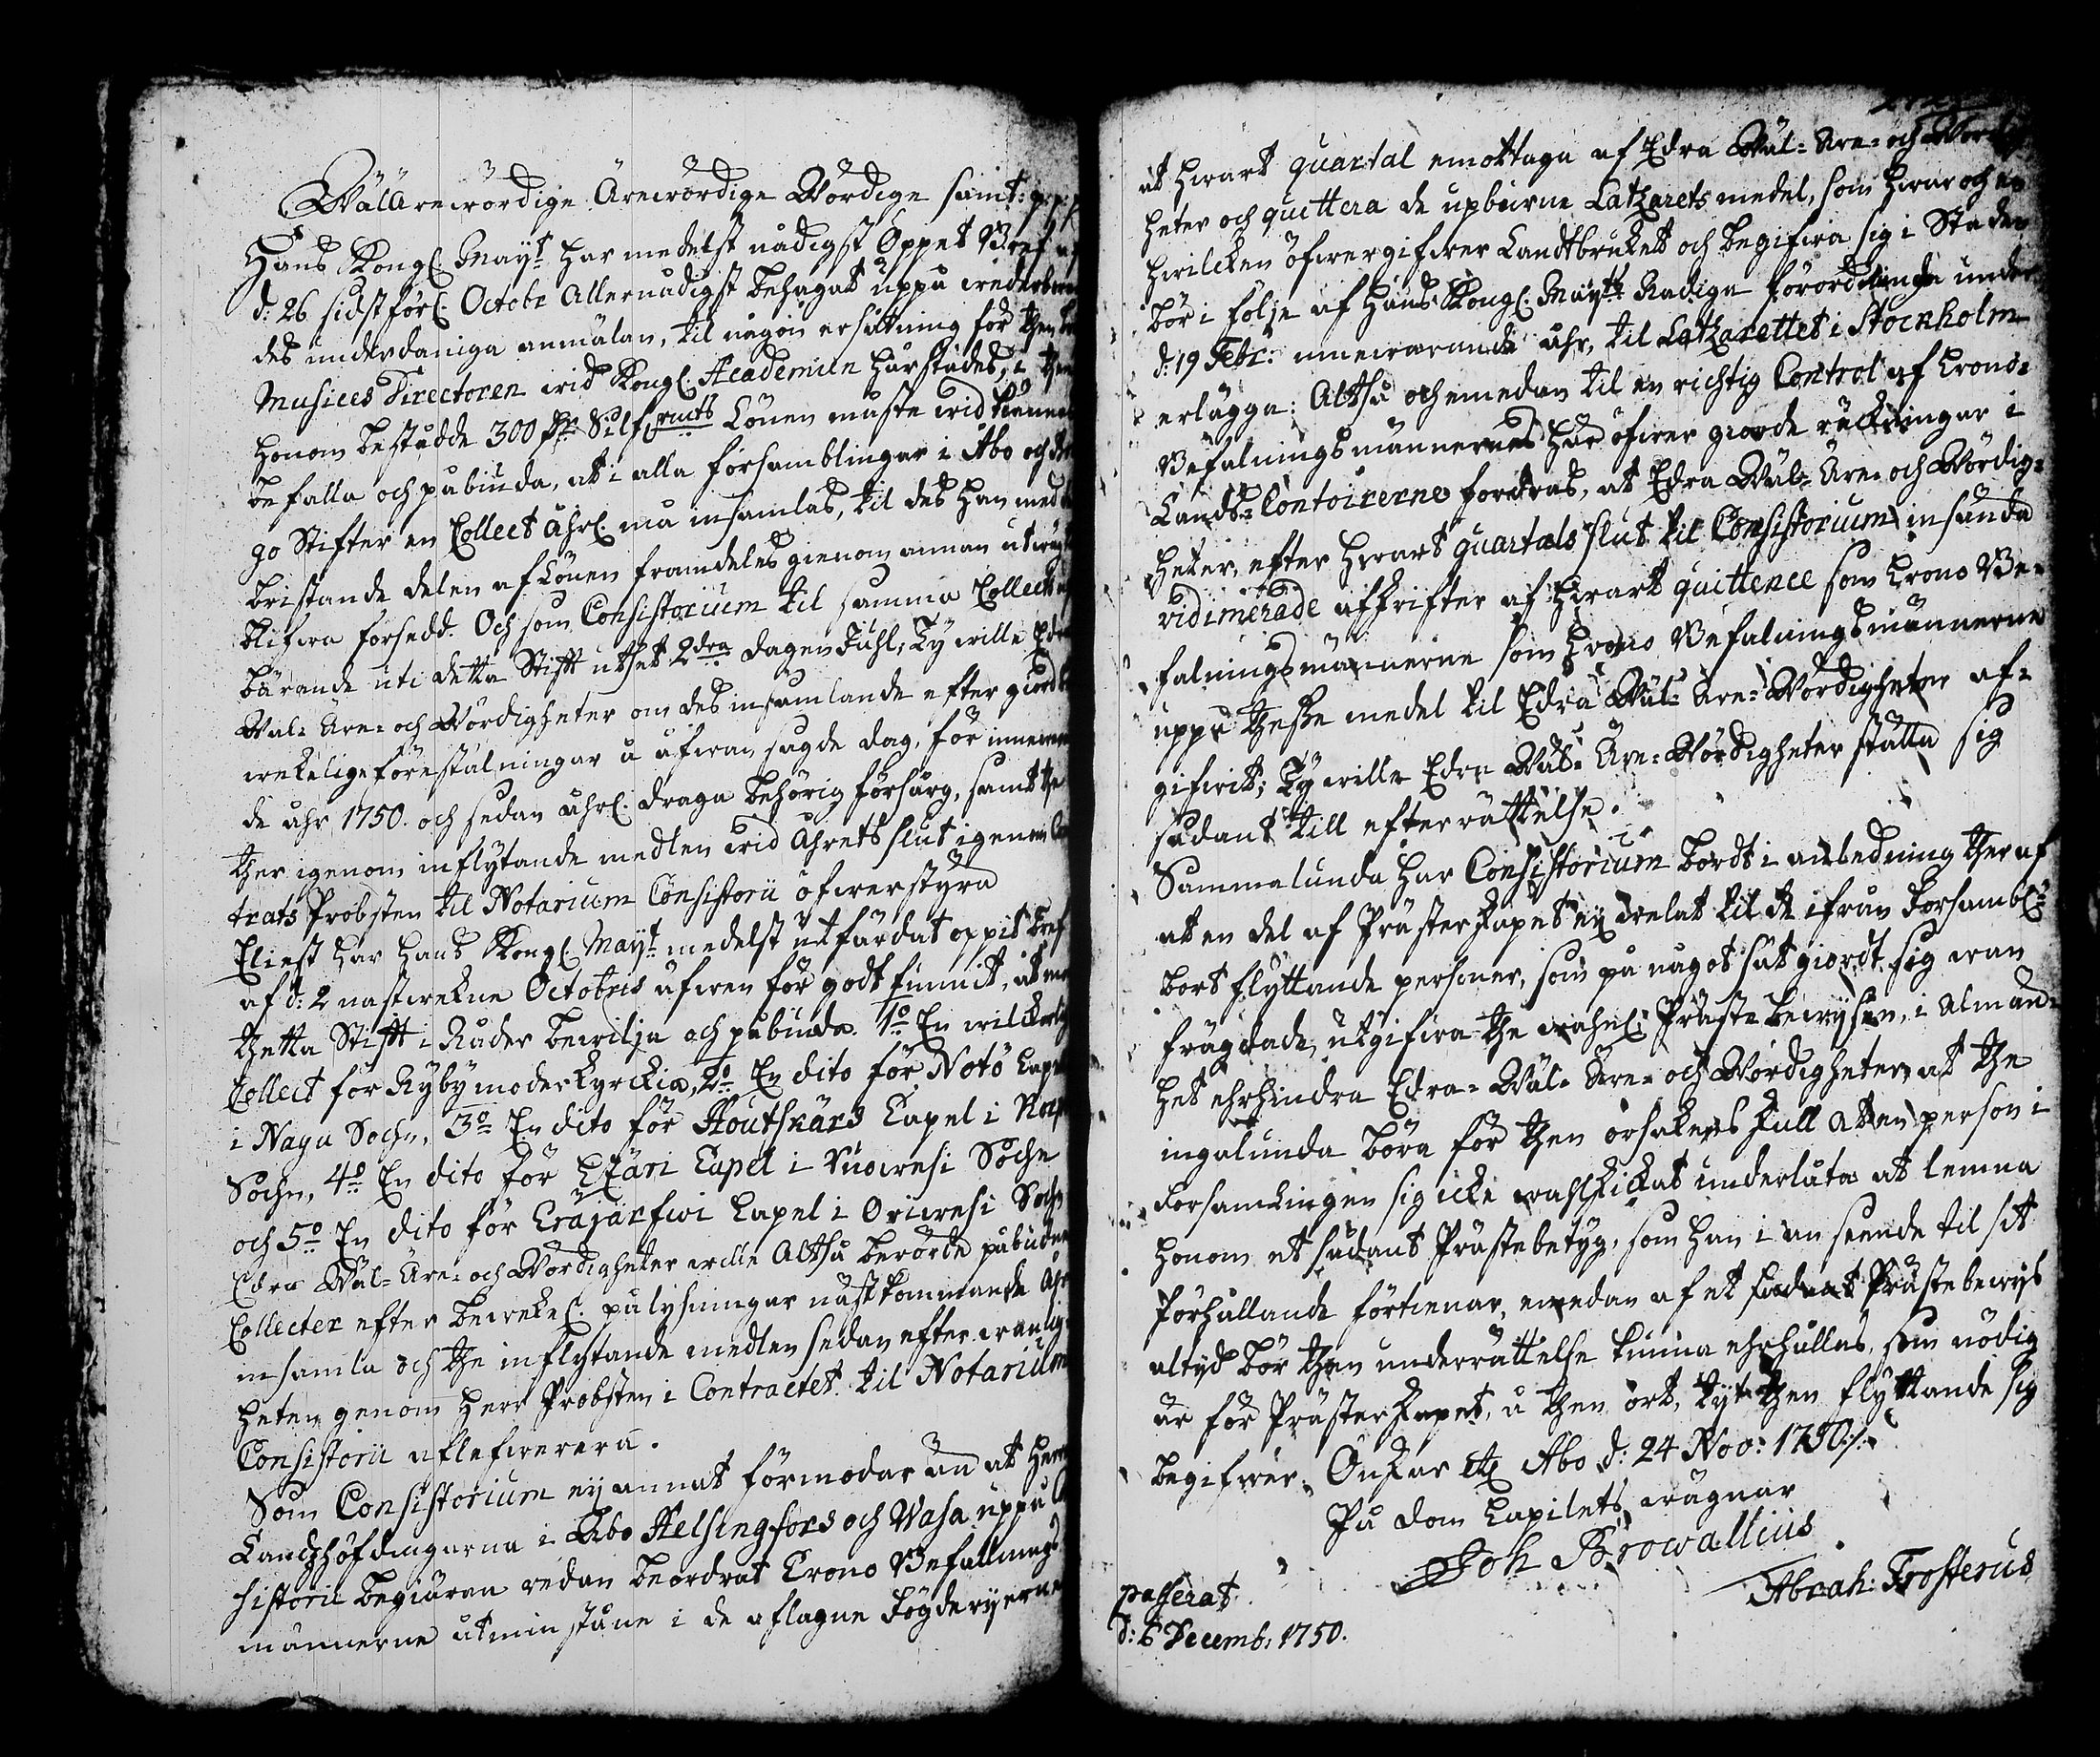 WälÄrewördige Ärewördige Wördige samt: p:p:
Hans Kongl. Mayt har medelst nådigst Öppet Bref af
d: 26 sidstförl. Octobr Allernådigst behagat uppå
des underdåniga anmälan, til någon ersättning för then
Musices Directoren wid Kongl. Academien härstädes, i then
honom bestådde 300 dr Silf. mts Lönen måste wid kiännas
befalla och påbiuda, at i alla församblingar i Åbo och
go Stifter en Collect åhrl. må insamlas, til des han med
bristande delen af Lönen framdeles gienom annan utwäg
blifwa forsedd. Och som Consistorium til samma Collects
bärande uti detta Stift utsat 2dra dagen Juhl; Ty wille Edra
Wäl- Äre- och Wördigheter om des insamlande efter giorde
werkelige föreställningar å åfwan sagde dag, för innewaran
de åhr 1750. och sedan åhrl. draga behörig försorg, samt the
ther igenom inflytande medlen wid Åhrets slut igenom Con
trats Probsten til Notarium Consistorii öfwerstyra
Eliest har Hans Kongl. Mayt medelst utfärdat öppit bref
af d: 2 nästwekne Octobris äfwen för godt funnit, at
thetta Stift i Nåder bewilja och påbiuda. 1o En wilckorlig
Collect för Kyby moderkyrckia, 2o En dito för Nötö Capel
i Nagu Sochn, 3o En dito för Houtskärs Capel i Korpo
Sochn, 4o En dito för Etzäri Capel i Ruowesi Sochn
och 5o En dito för Eräjärfwi Capel i Oriwesi Sochn
Edra Wäl- Äre- och Wördigheter wille Altså berörde påbudne
Collecter efter bewekel. pålysningar nästkommande Åhr
insamla och the inflytande medlen sedan efter wanlig
heten genom Herr Probsten i Contractet til Notarium
Consistorii aflefwerera.
Som Consistorium ey annat förmodar än at Herrar
Landzhöfdingarna i Åbo Helsingfors och Wasa uppå Con
sistorii begiäran redan beordrat Crono Befallnings
männerne åtminstone i de aflägne Fögderyerne
at hwart quartal emottaga af Edra Wäl- Äre- och Wördig
heter och quittera de upburne Latzarets medel, som hwar och en
hwilcken öfwergifwer Landtbruket och begifwa sig i Städer
bör i följe af Hans Kongl. Mayts Nådiga förordnande under
d. 19 Febr: innewarande åhr, til Latzarettet i Stockholm
erlägga: Altså och emedan til en richtig Control af Crono-
Befalningsmännernes här öfwer giorde räckningar i
Landt-Contoirerne fordras, at Edra Wäl- Äre- och Wördig-
heter, efter hwart quartals slut til Consistorium insända
vidimerade afskrifter af hwart quittence som Crono Be-
falningsmännerne som Crono Befalningsmännerne
uppå thesse medel til Edra Wäl- Äre- Wördigheter af-
gifwit; Ty wille Edra Wäl- Äre- Wördigheter ställa sig
sådant till efterrättelse.
Sammalunda har Consistorium bordt i anledning ther af
at en del af Prästerskapet ey welat til de ifrån Forsambl:
bort flyttande personer, som på något sät giordt sig wan
frägdade, utgifwa the wahnl: Prästebewysen, i Alman-
het ehrhindra Edra- Wäl- Äre- och Wördigheter at the
ingalunda böra för then orsakens skull at en person i
Forsamlingen sig icke wahlskickat underlåta at lemna
honom et sådant Prästebetyg, som han i anseende til sit
förhållande förtienar, emedan af et sådant Prästebewys
altyd bör then underrättelse kunna ehrhållas, som nödig
är för Prästerskapet, å then ort, tyt then flyttande sig
begifwer. Önskar etc Åbo d: 24 Nov: 1750.
På Dom Capitlets wägnar
Joh Browallius
Abrah: Frosterus
passerat
d: 6 Decemb: 1750.